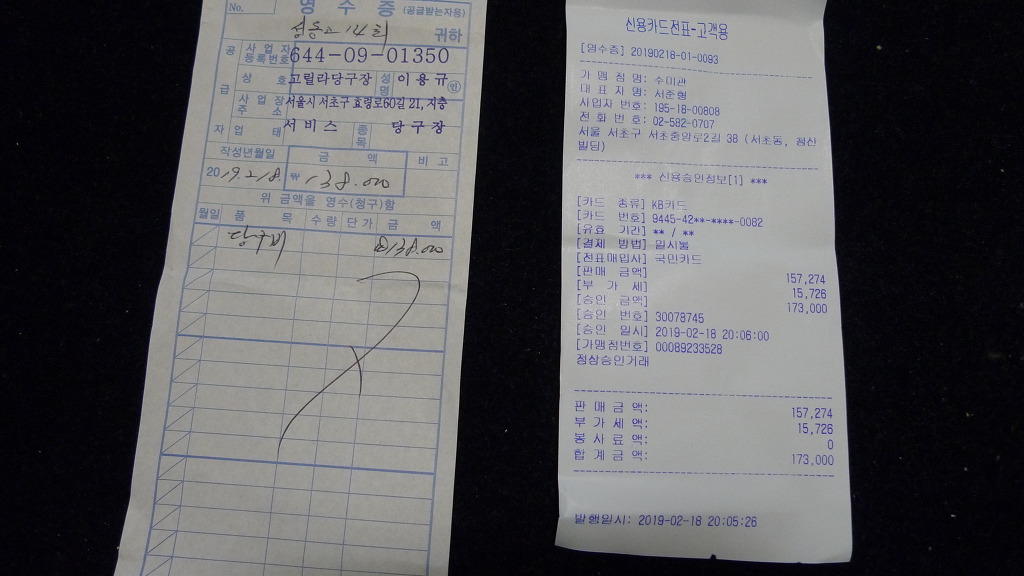 No.
영 수 증 (공급받는자용)
성동고 14회 귀하
공 급 자
사업자 등록번호 644-09-01350
상 호 고릴라당구장 성명 이용규 ㊞
사업장 주소 서울시 서초구 효령로60길 21, 지층
업 태 서비스 종목 당구장
작성년월일 금 액 비 고
2019.2.18. ₩ 138.000
위 금액을 영수(청구)함
월일 품 목 수량 단가 금 액
당구비 138.000
신용카드전표-고객용
[영수증] 20190218-01-0093
가 맹 점 명: 수미관
대 표 자 명: 서준형
사업자 번호: 195-18-00808
전 화 번 호: 02-582-0707
서울 서초구 서초중앙로2길 38 (서초동, 청산
빌딩)
*** 신용승인정보[1] ***
[카드 종류] KB카드
[카드 번호] 9445-42**-****-0082
[유효 기간] ** / **
[결제 방법] 일시불
[전표매입사] 국민카드
[판매 금액] 157,274
[부 가 세] 15,726
[승인 금액] 173,000
[승인 번호] 30078745
[승인 일시] 2019-02-18 20:06:00
[가맹점번호] 00089233528
정상승인거래
판 매 금 액: 157,274
부 가 세 액: 15,726
봉 사 료 액: 0
합 계 금 액: 173,000
발행일시: 2019-02-18 20:05:26